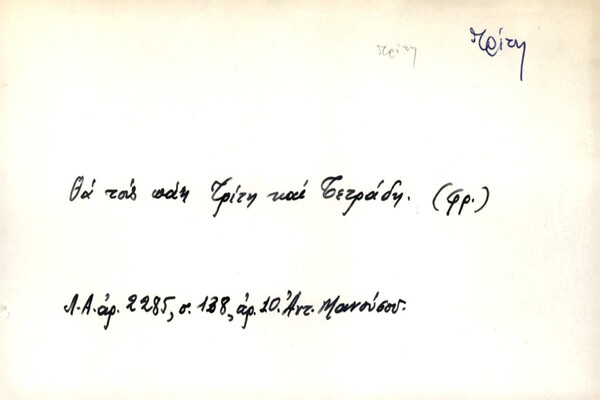 Τρίτη Τρίτη
Θά τούς πάη Τρίτη καί Τετράδη. (φρ.)
Λ.Α. ἀρ. 2285, σ. 138, ἀρ. 20. Ἀντ. Μανούσου.